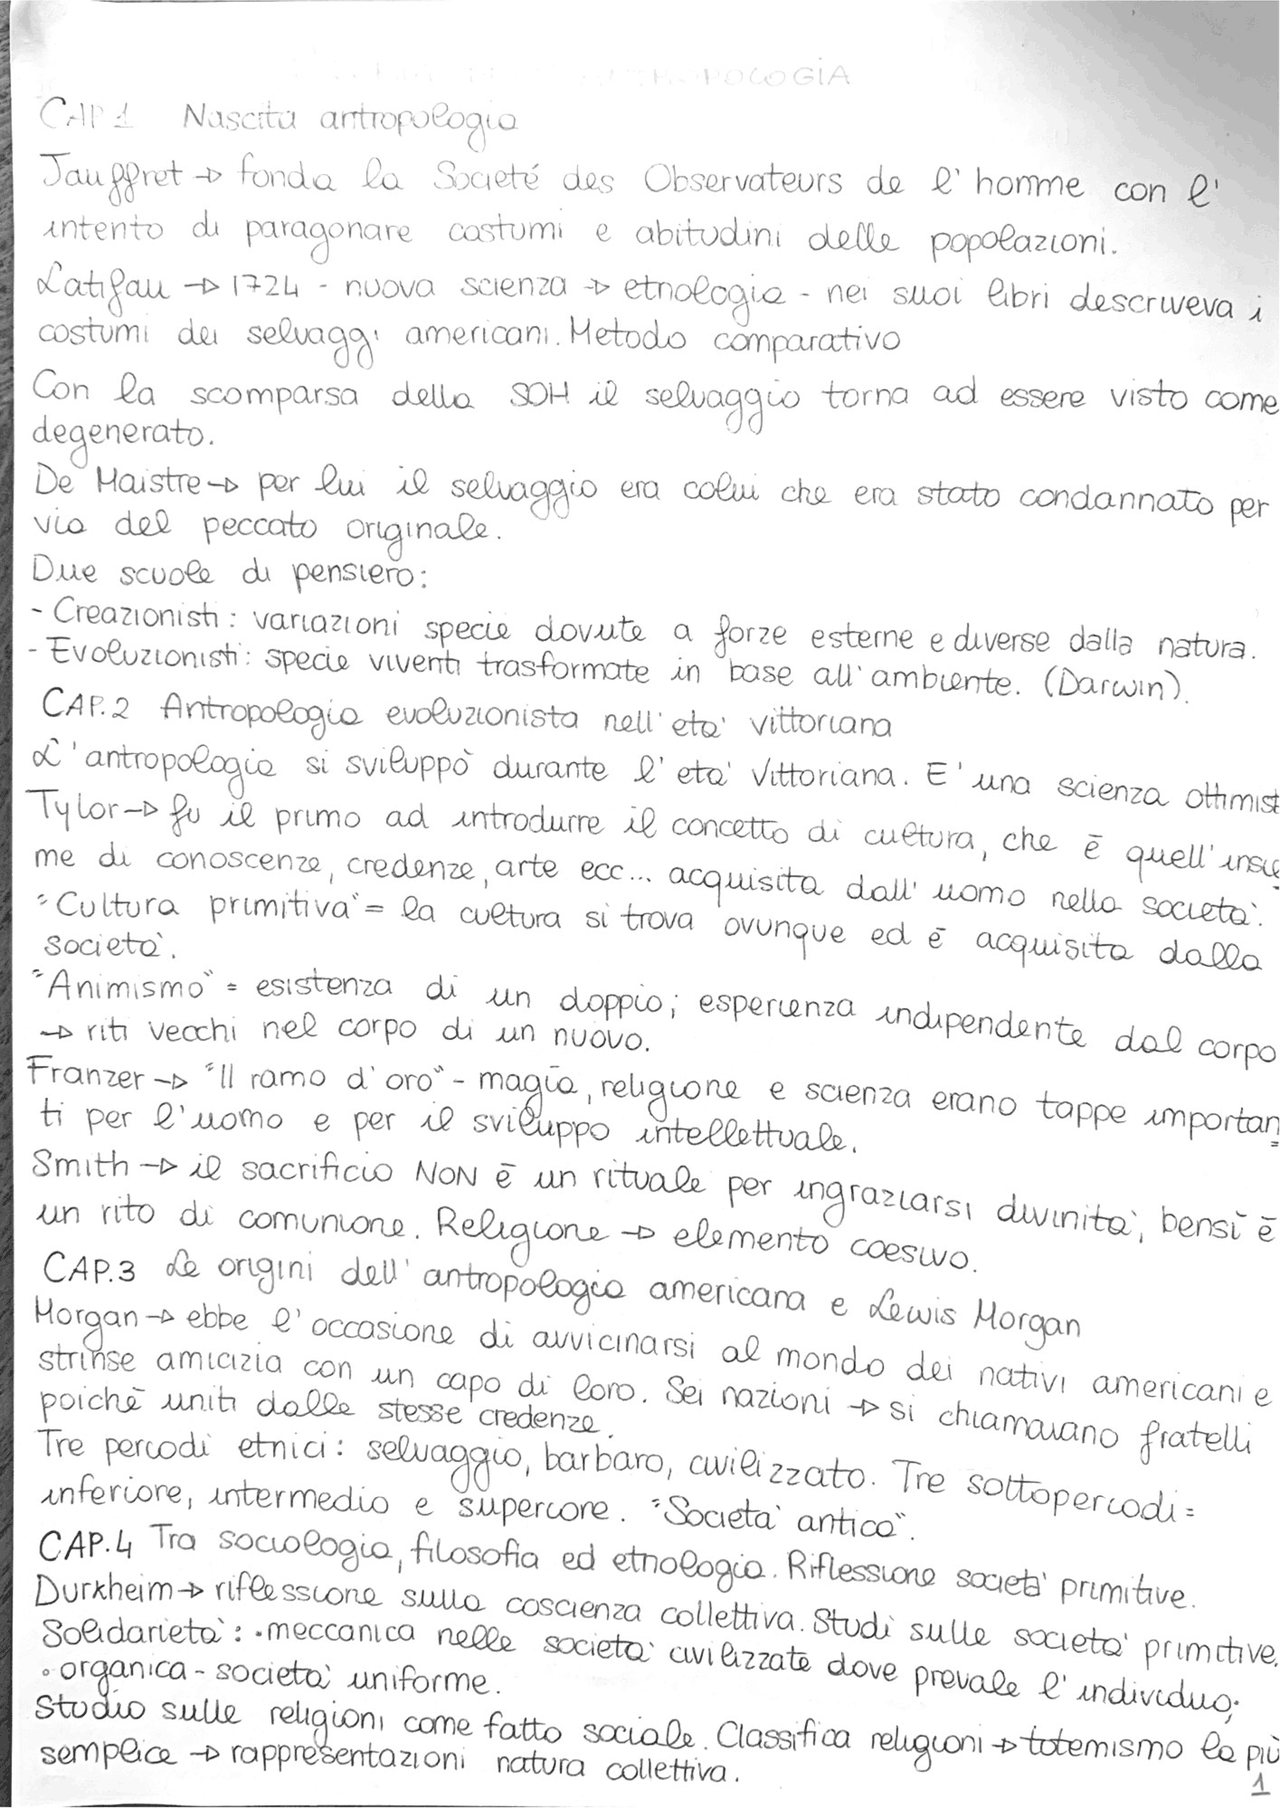 ANTROPOLOGIA
CAP 1 Nascita antropologia
Jauffret → fonda la Societé des Observateurs de l'homme con l'
intento di paragonare costumi e abitudini delle popolazioni.
Latifau → 1724 - nuova scienza → etnologia - nei suoi libri descriveva i
costumi dei selvaggi americani. Metodo comparativo
Con la scomparsa della SOH il selvaggio torna ad essere visto come
degenerato.
De Maistre → per lui il selvaggio era colui che era stato condannato per
via del peccato originale.
Due scuole di pensiero:
- Creazionisti: variazioni specie dovute a forze esterne e diverse dalla natura.
- Evoluzionisti: specie viventi trasformate in base all'ambiente. (Darwin).
CAP.2 Antropologia evoluzionista nell'età vittoriana
L'antropologia si sviluppò durante l'età Vittoriana. E' una scienza ottimist
Tylor → fu il primo ad introdurre il concetto di cultura, che è quell'insie
me di conoscenze, credenze, arte ecc... acquisita dall'uomo nella società.
"Cultura primitiva" = la cultura si trova ovunque ed è acquisita dalla
società.
"Animismo" = esistenza di un doppio; esperienza indipendente dal corpo
→ riti vecchi nel corpo di un nuovo.
Franzer → "Il ramo d'oro" - magia, religione e scienza erano tappe importan
ti per l'uomo e per il sviluppo intellettuale.
Smith → il sacrificio NON è un rituale per ingraziarsi divinità, bensì è
un rito di comunione. Religione → elemento coesivo.
CAP.3 Le origini dell'antropologia americana e Lewis Morgan
Morgan → ebbe l'occasione di avvicinarsi al mondo dei nativi americani e
strinse amicizia con un capo di loro. Sei nazioni → si chiamavano fratelli
poichè uniti dalle stesse credenze.
Tre periodi etnici: selvaggio, barbaro, civilizzato. Tre sottoperiodi =
inferiore, intermedio e superiore. "Società antica".
CAP.4 Tra sociologia, filosofia ed etnologia. Riflessione società primitive.
Durkheim → riflessione sulla coscienza collettiva. Studi sulle società primitive.
Solidarietà: • meccanica nelle società civilizzate dove prevale l'individuo;
• organica - società uniforme.
Studio sulle religioni come fatto sociale. Classifica religioni → totemismo la più
semplice → rappresentazioni natura collettiva.
1